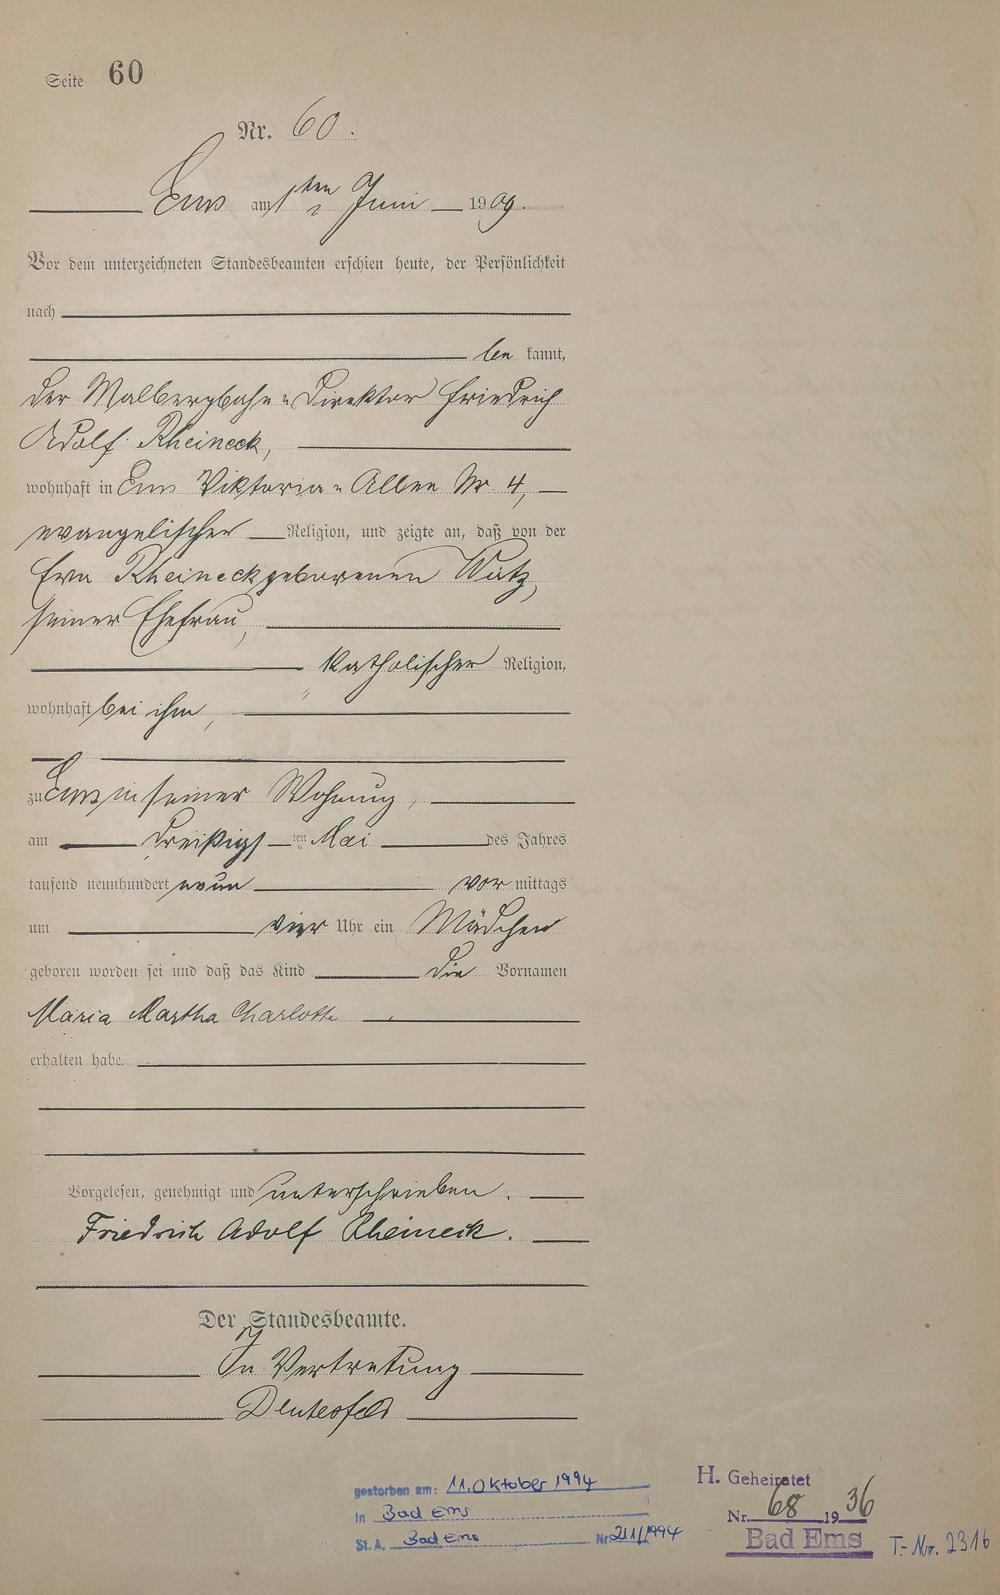 Seite 60
Nr. 60.
Ems am 1ten Juni 1909.
Vor dem unterzeichneten Standesbeamten erschien heute, der Persönlichkeit
nach
be kannt,
der Malbergbahn-Direktor Friedrich
Adolf Rheineck,
wohnhaft in Ems Viktoria-Allee Nr. 4,
evangelischer Religion, und zeigte an, daß von der
Eva Rheineck geborenen
seiner Ehefrau,
katholischer Religion,
wohnhaft bei ihm,
zu Ems in seiner Wohnung,
am dreißigsten Mai des Jahres
tausend neunhundert neun vor mittags
um vier Uhr ein Mädchen
geboren worden sei und daß das Kind die Vornamen
Maria Martha Charlotte
erhalten habe.
Vorgelesen, genehmigt und unterschrieben.
Friedrich Adolf Rheineck.
Der Standesbeamte.
In Vertretung
gestorben am: 11. Oktober 1994
in Bad Ems
St.A. Bad Ems Nr. 211/1994
H. Geheiratet
Nr. 68 1936
Bad Ems
T.-Nr. 2316